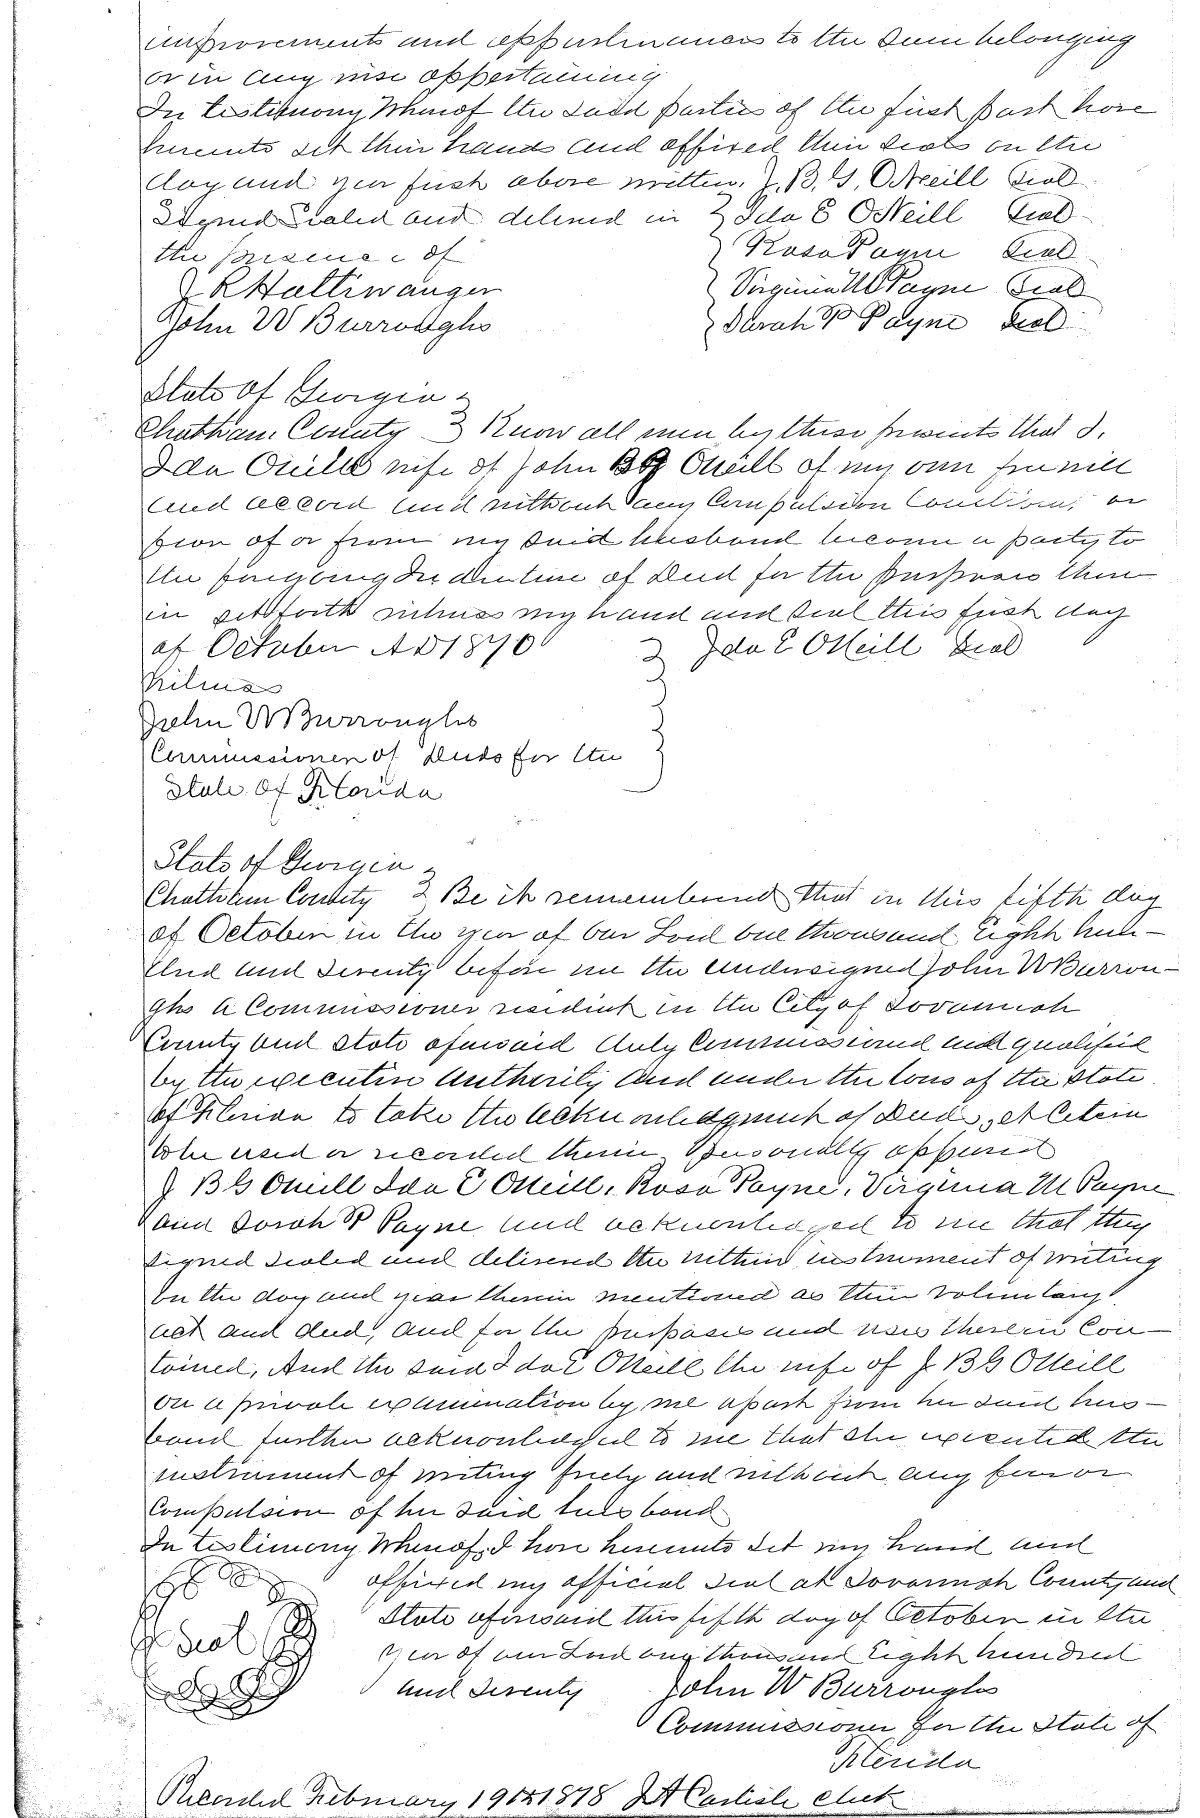 improvements and appurtenances to the same belonging
or in any wise appertaining
In testimony Whereof the said parties of the first part have
hereunto set their hands and affixed their seals on the
day and year first above written. J. B. G. ONeill Seal
Signed Sealed and delivered in } Ida E ONeill Seal
the presence of } Rosa Payne Seal
J R Haltiwanger } Virginia M Payne Seal
John W Burroughs } Sarah P Payne Seal
State of Georgia }
Chatham County } Know all men by these presents that I.
Ida Oneill wife of John B G Oneill of my own free will
and accord and without any Compulsion Constraint, or
sion of or from my said husband become a party to
the foregoing Indenture of Deed for the purposes there
in set forth witness my hand and seal this first day
of October AD 1870 } Ida E ONeill Seal
Witness
John W Burroughs
Commissioner of Deeds for the
State of Florida
State of Georgia }
Chatham County } Be it remembered that on this fifth day
of October in the year of our Lord one thousand Eight hun-
dred and Seventy before me the undersigned John W Burrou-
ghs a Commissioner resident in the City of Savannah
County and State aforesaid duly Commissioned and qualified
by the executive Authority and under the laws of the State
of Florida to take the acknowledgment of Deeds, et Cetera
to be used or recorded therein Personally appeared
J B G Oneill Ida E ONeill, Rosa Payne, Virginia M Payne
and Sarah P Payne and acknowledged to me that they
signed sealed and delivered the within instrument of writing
on the day and year therein mentioned as their voluntary
act and deed, and for the purposes and uses therein Con-
tained, And the said Ida E ONeill the wife of J B G ONeill
on a private examination by me apart from her said hus-
band further acknowledged to me that she executed the
instrument of writing freely and without any fear or
Compulsion of her said husband
In testimony Whereof, I have hereunto set my hand and
affixed my official seal at Savannah County and
Seal State aforesaid this fifth day of October in the
year of our Lord one thousand Eight hundred
and Seventy John W Burroughs
Commissioner for the State of
Florida
Recorded February 19th 1878 J A Carlisle clerk